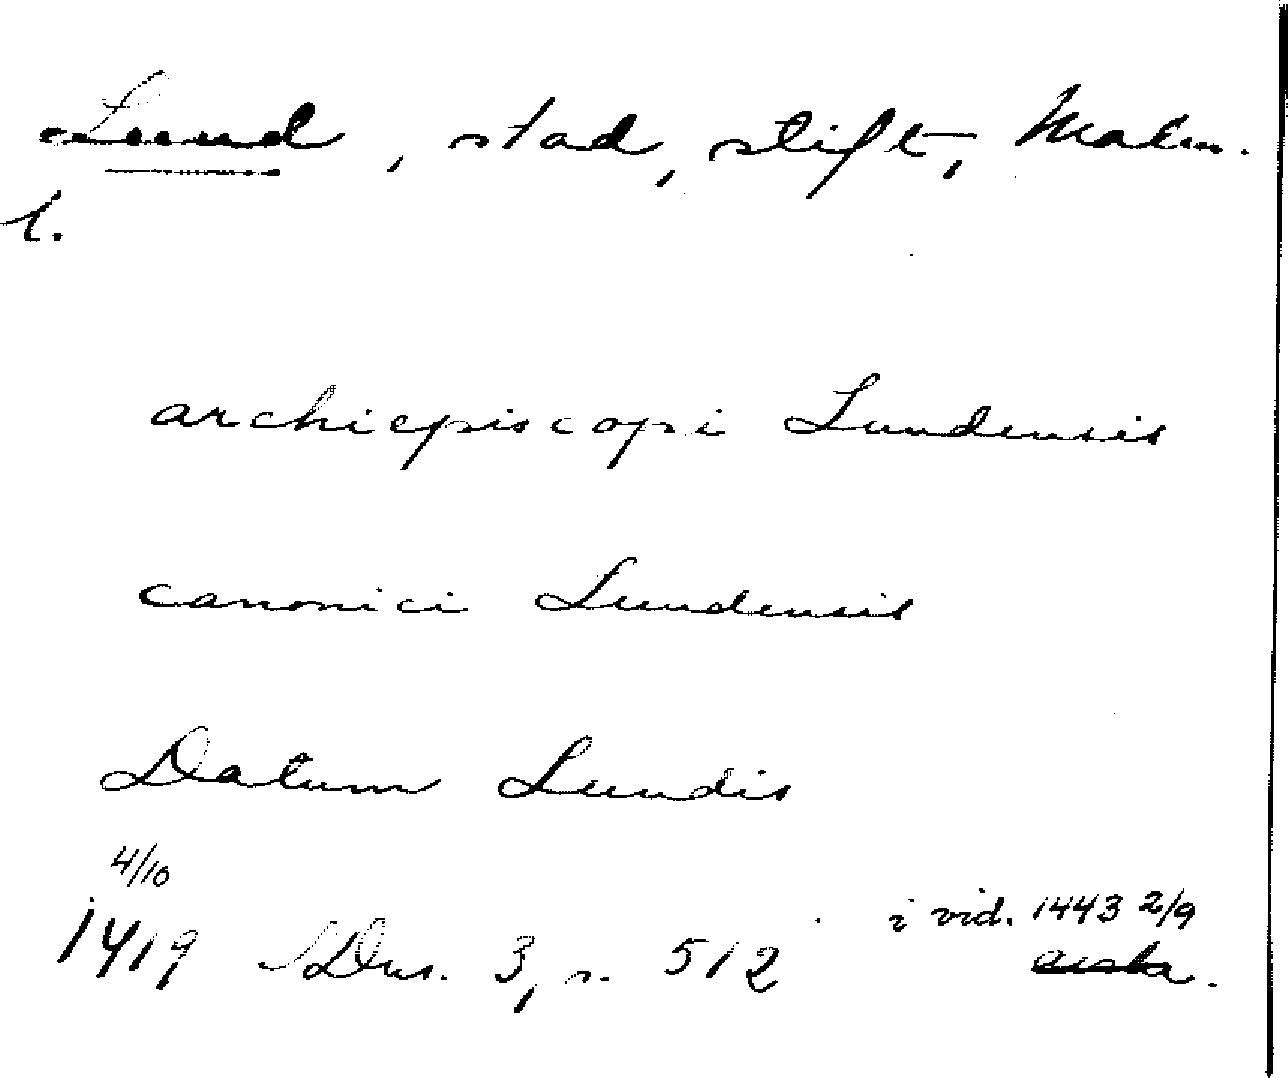 Lund, stad, stift, Malm.
l.
archiepiscopi Lundensis
canonici Lundensis
Datum Lundis
4/10
1419 SDns. 3, s. 512 i vid. 1443 2/9